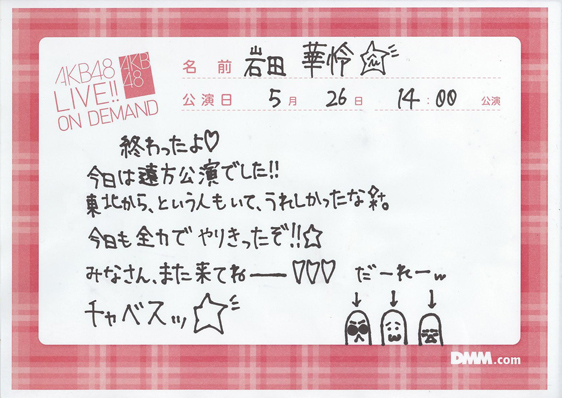 AKB48
LIVE!!
ON DEMAND
AKB
48
名前 岩田 華怜☆
公演日 5月 26日 14:00 公演
終わったよ♡
今日は遠方公演でした!!
東北から、という人もいて、うれしかったな
今日も全力で やりきったぞ!!☆
みなさん、また来てねー♡♡♡ だーれーw
チャベスッ☆
↓ ↓ ↓
DMM.com